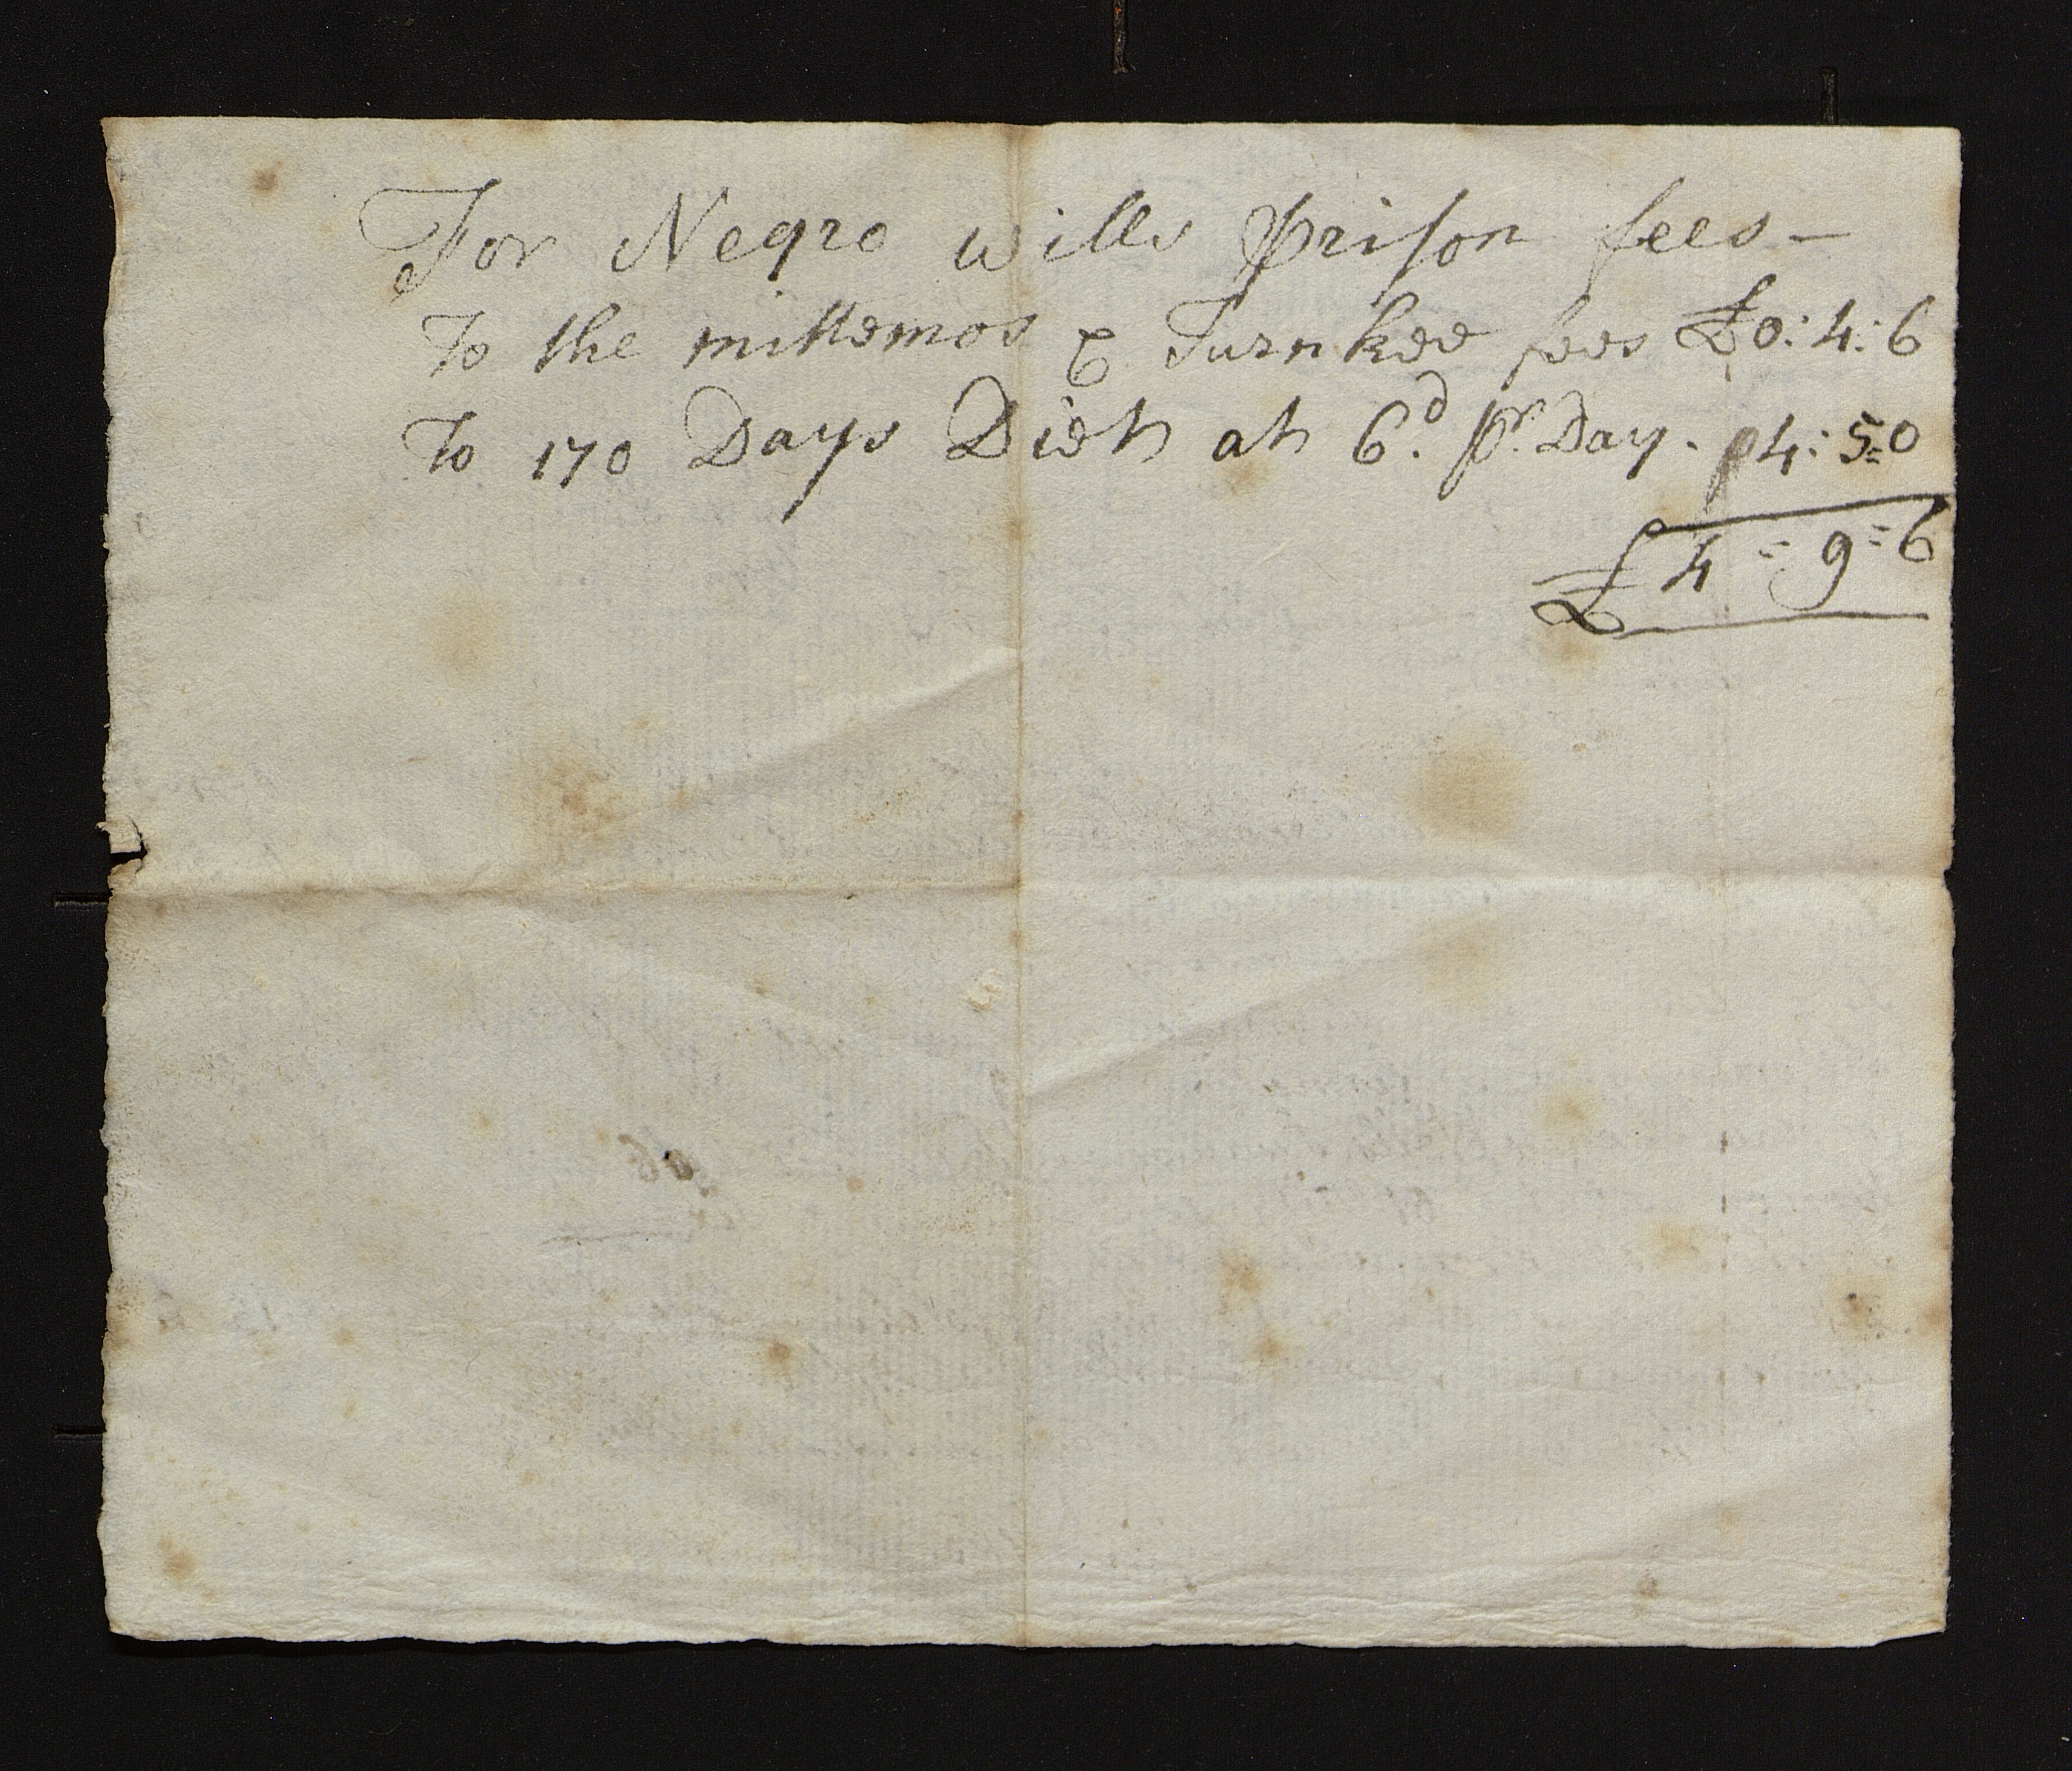 For Negro wills Prison fees -
To the mittemos & Turnkee fees £0:4:6
To 170 Days Diet at 6d. pr. Day. 4:5=0
£4=9=6